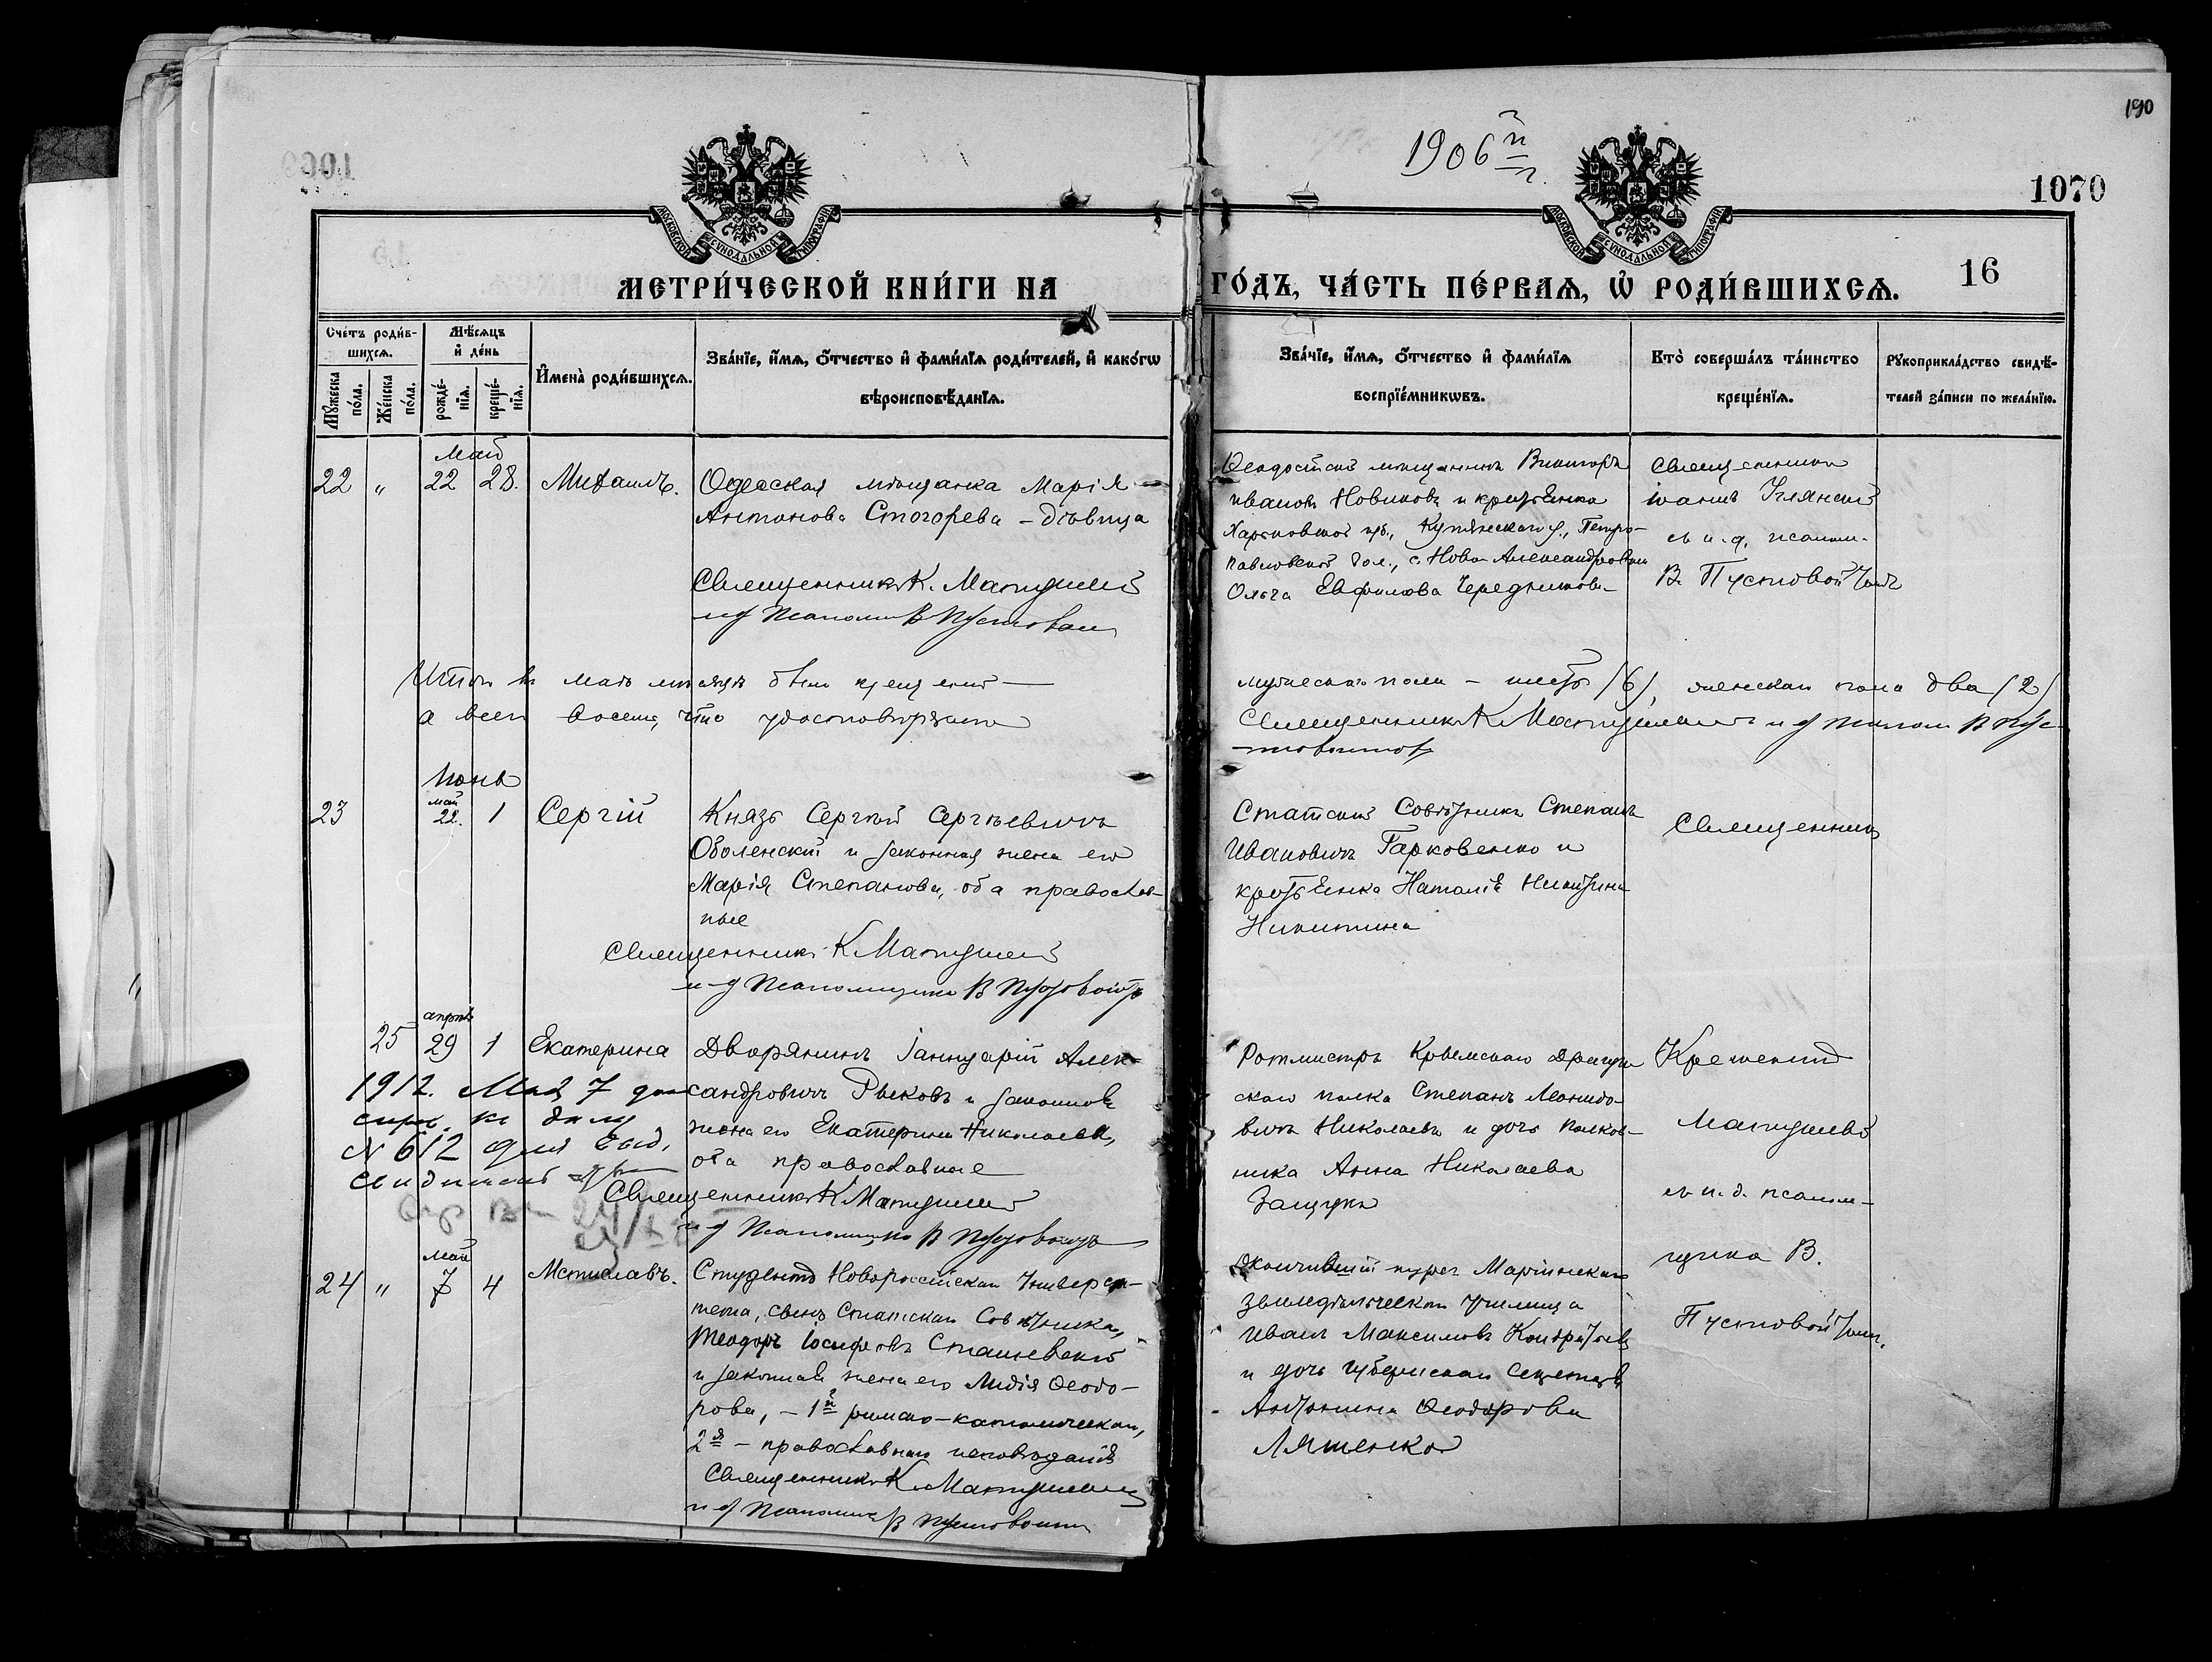 190
1906 й г.
1070
МОСКОВСКОЙ СѴНОДАЛЬНОЙ ТИПОГРАФІИ
МОСКОВСКОЙ СѴНОДАЛЬНОЙ ТИПОГРАФІИ
МЕТРИ́ЧЕСКОЙ КНИ́ГИ НА
ГО́ДЪ, ЧА́СТЬ ПЕ́РВАѦ, Ѡ҆ РОДИ́ВШИХСѦ.
16
Сче́тъ роди́в-
шихсѧ.
Мꙋ́жеска по́ла.
Же́нска по́ла.
Мѣ́сѧцъ
и҆ де́нь
рожде́-
нїѧ.
креще́-
нїѧ.
И҆мена̀ роди́вшихсѧ.
Зва́нїе, и҆́мѧ, ѻ҆́тчество и҆ фами́лїѧ роди́телей, и҆ како́гѡ
вѣроисповѣ́данїѧ.
Зва́нїе, и҆́мѧ, ѻ҆́тчество и҆ фами́лїѧ
воспрїе́мникѡвъ.
Кто̀ соверша́лъ та́инство
креще́нїѧ.
Рꙋкоприкла́дство свидѣ́-
телей за́писи по жела́нїю.
Май
22 " 22 28. Михаилъ.
Одесская мѣщанка Марія
Антонова Стогорева – дѣвица
Священникъ К. Матушевъ
и д псаломщ В Пустовойт
Ѳеодосійскій мѣщанинъ Викторъ
Ивановъ Новиковъ и крестьянка
Харьковской губ., Купянскаго у., Петро-
павловской вол., с. Ново-Александровки
Ольга Евфимова Чередникова
Священникъ
Іоаннъ Углянскій
съ и. д. псалом.
В. Пустовойтомъ
Итого въ маѣ мѣсяцѣ было крещеній
мужескаго пола – шесть (6), женскаго пола два (2)
а всего восемь, что удостовѣряемъ
Священникъ К Матушевъ и д псалом В Пус-
товойтовъ
Іюнь
23 май 22. 1 Сергій
Князь Сергѣй Сергѣевичъ
Оболенскій и законная жена его
Марія Степановна, оба православ-
ные
Священникъ К Матушевъ
и д Псаломщика В Пустовойтъ
Статскій Совѣтникъ Степанъ
Ивановичъ Гарковенко и
крестьянка Наталія Никитина
Никитина
Священникъ
25 апрѣль 29 1 Екатерина
Дворянинъ Іаннуарій Алек-
сандровичъ Рыковъ и законная
жена его Екатерина Николаевна,
оба православные
Священникъ К Матушевъ
и д Псаломщика В Пустовойтъ
1912. Мая 7 дня
справ. къ дѣлу
N 612 для выд.
Ротмистръ Крымскаго Драгун-
скаго полка Степанъ Леонидо-
вичъ Николаевъ и дочь полков-
ника Анна Николаева
Защука
Климентъ
Матушевъ
съ и. д. псалом-
щика В.
Пустовойтомъ.
24 " май 7 4 Мстиславъ.
Студентъ Новороссійскаго Универси-
тета, сынъ Статскаго Совѣтника,
Теодоръ Іосифовъ Сташевскій
и законная жена его Лидія Ѳеодо-
рова, – 1й римско-католическаго,
2я – православнаго исповѣданія
Священникъ К. Матушевъ
и д Псаломщ В Пустовойтъ
Окончившій курсъ Маріинскаго
землед{ѣ}льческаго училища
Иванъ Максимовъ Кондратьевъ
и дочь губернскаго секретаря
Антонина Ѳеодорова
Ляшенко